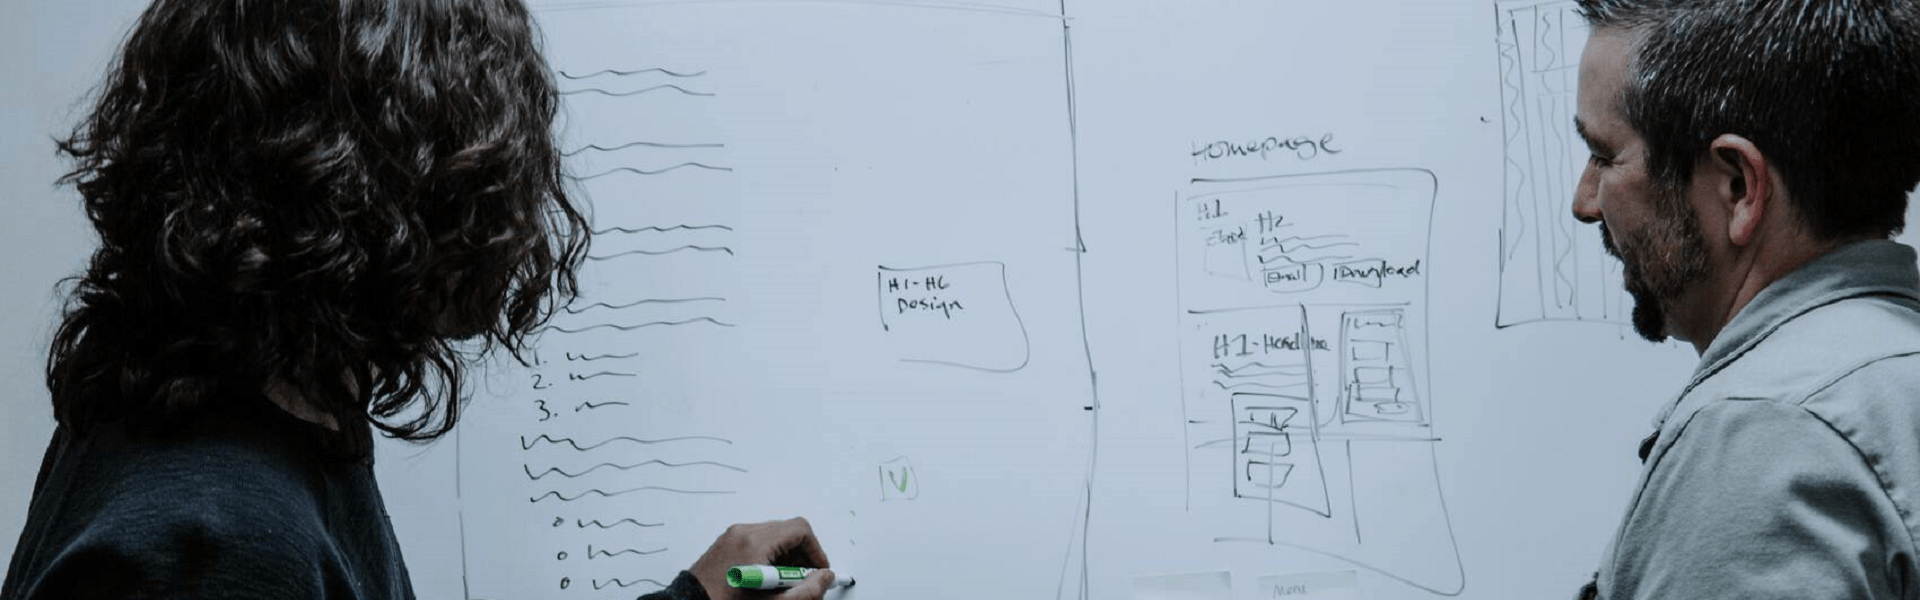 1.
2.
3.
H1-H6
Design
V
Homepage
H1
H2
Email
Download
H1-Headline
Menu